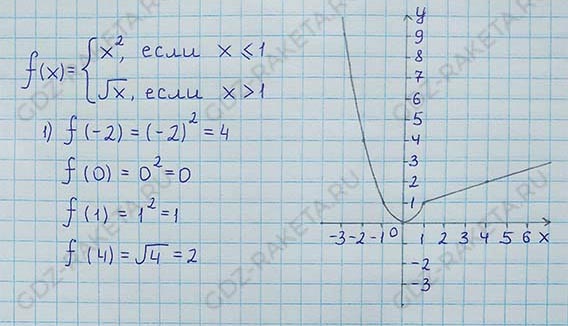 f(x)={x², если x ⩽ 1
√x, если x > 1
1) f(-2) = (-2)² = 4
f(0) = 0² = 0
f(1) = 1² = 1
f(4) = √4 = 2
y
9
8
7
6
5
4
3
2
1
-3 -2 -1 0 1 2 3 4 5 6 x
-2
-3
GDZ-RAKETA.RU